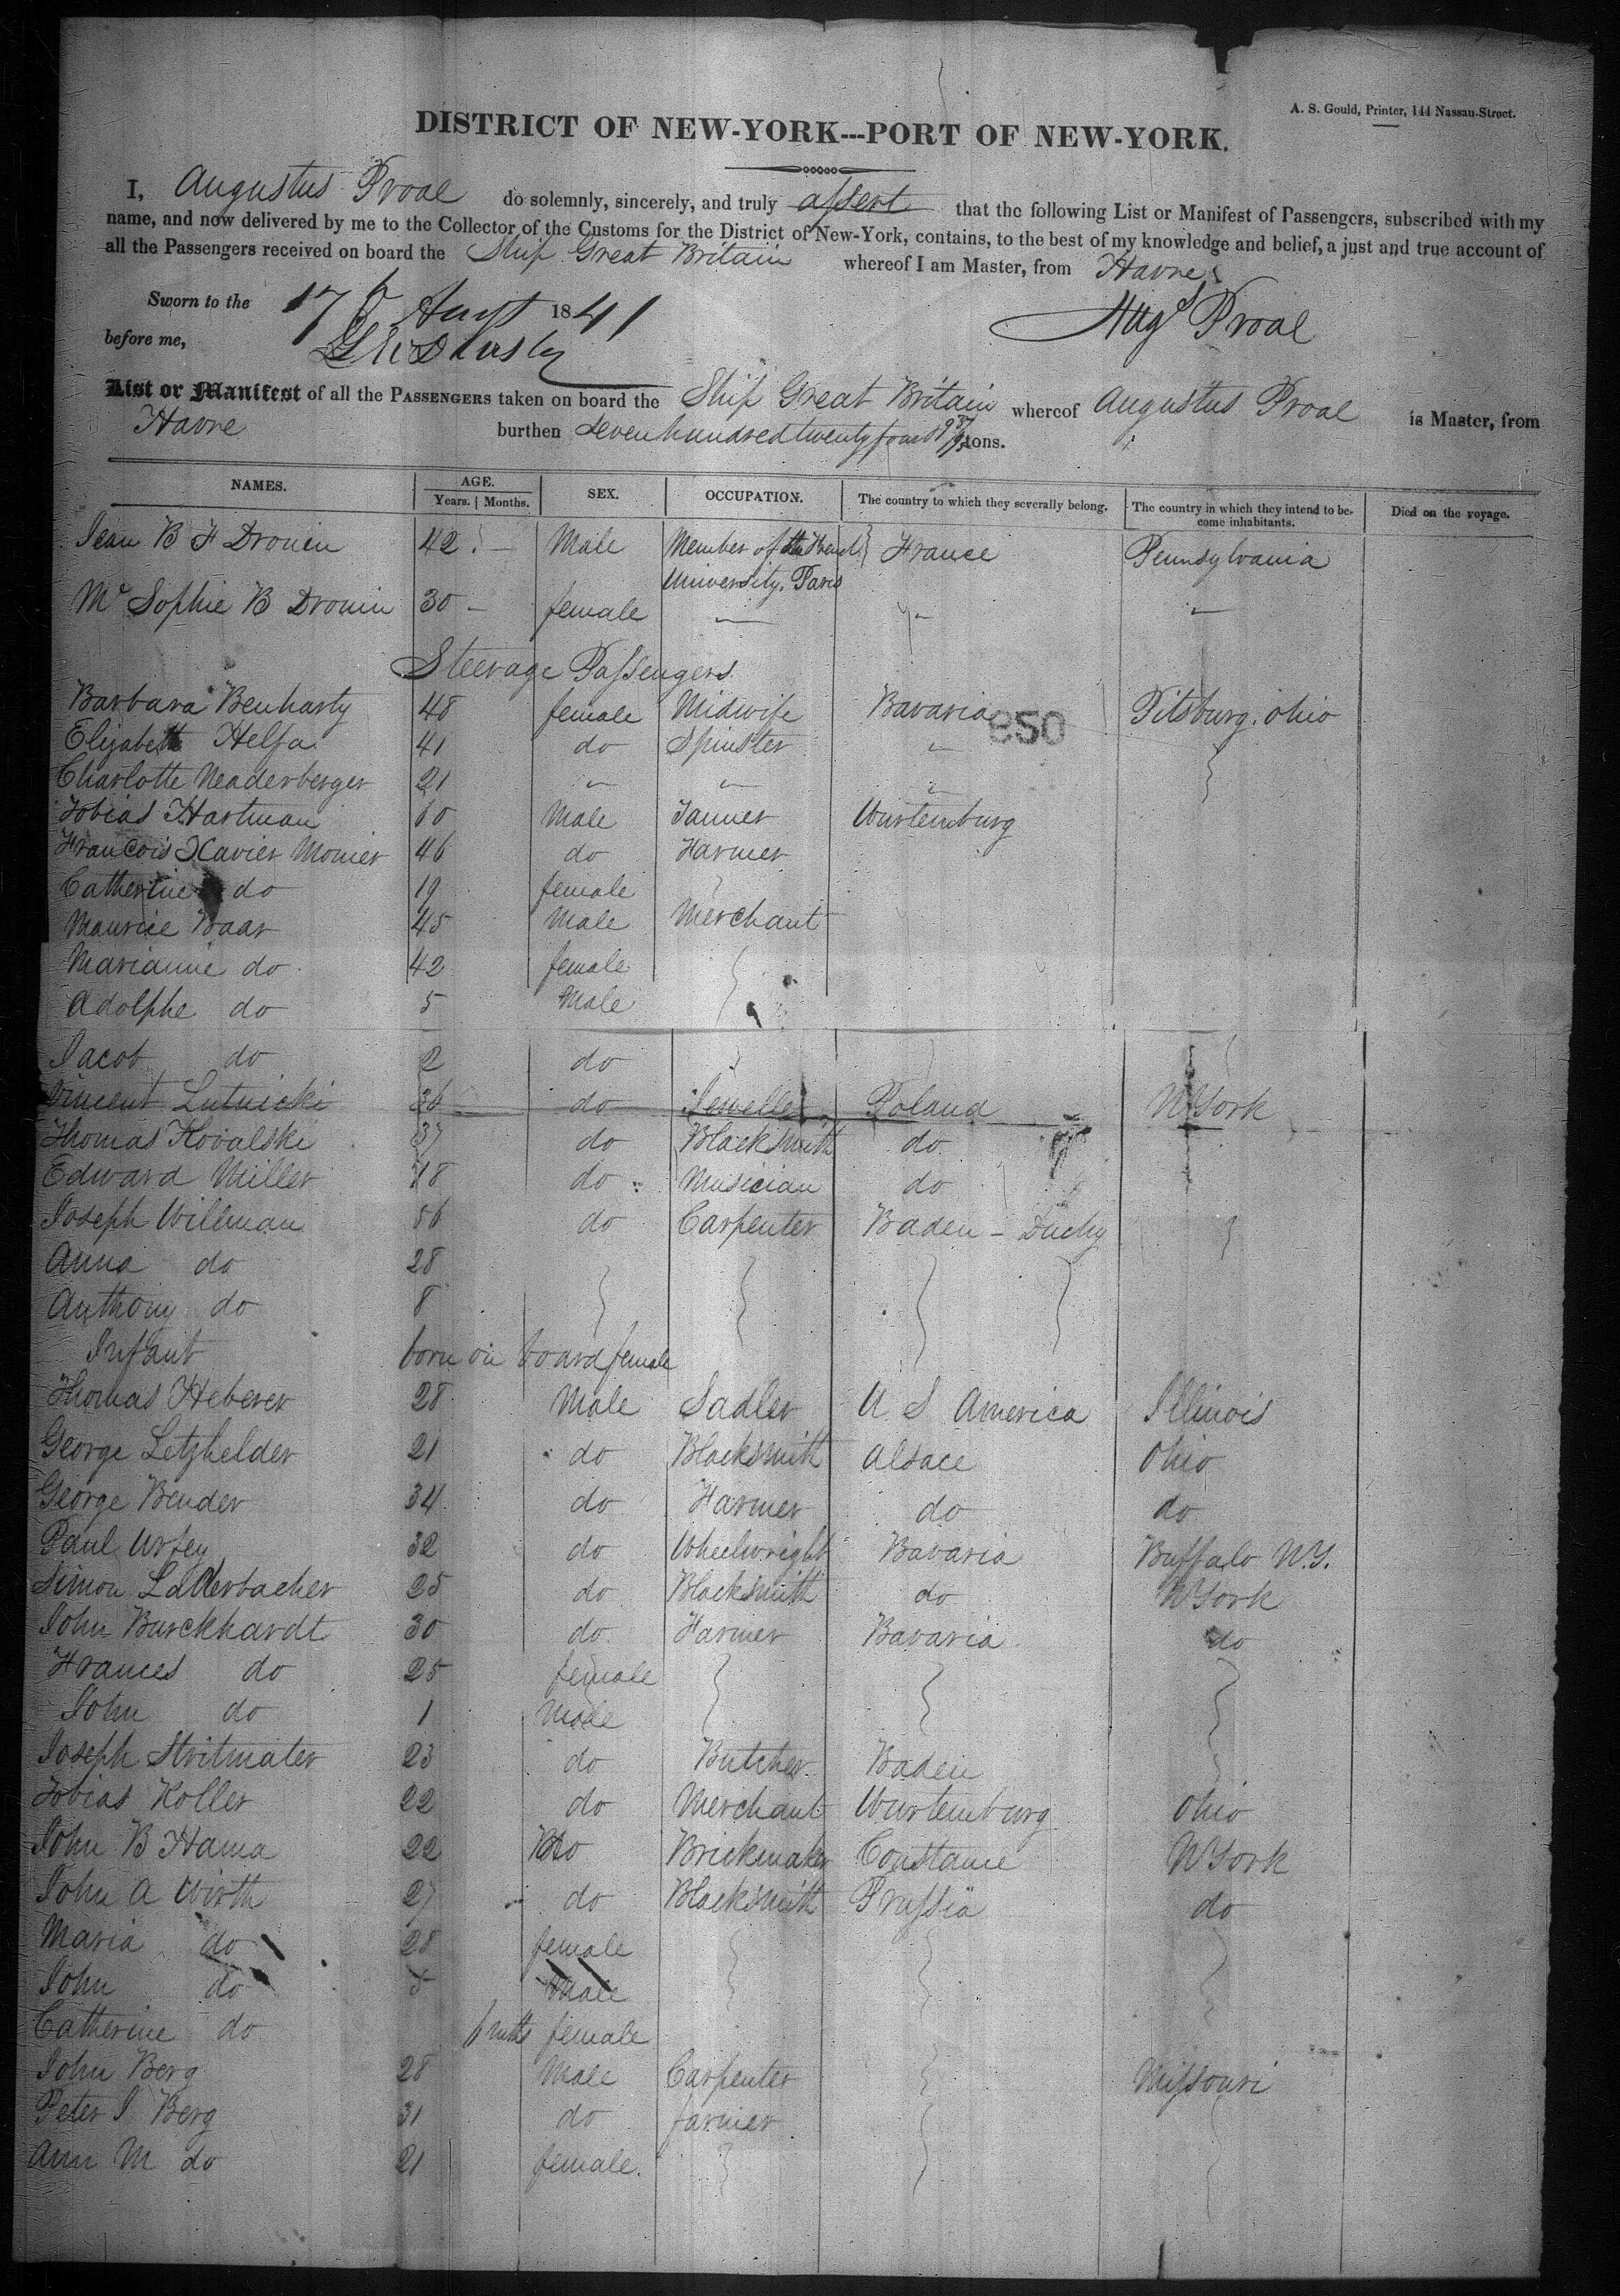 A. S. Gould, Printer, 144 Nassau-Street.
DISTRICT OF NEW-YORK---PORT OF NEW-YORK.
I, Augustus Proal do solemnly, sincerely, and truly assert that the following List or Manifest of Passengers, subscribed with my
name, and now delivered by me to the Collector of the Customs for the District of New-York, contains, to the best of my knowledge and belief, a just and true account of
all the Passengers received on board the Ship Great Britain whereof I am Master, from Havre
Sworn to the 17 Augst 1841 Augs Proal
before me,
List or Manifest of all the PASSENGERS taken on board the Ship Great Britain whereof Augustus Proal is Master, from
Havre burthen Seven hundred twenty four tons.
NAMES. AGE. SEX. OCCUPATION. The country to which they severally belong. The country in which they intend to be- Died on the voyage.
Years. Months. come inhabitants.
Jean B F Drouin 42 - Male Member of the France Pennsylvania
University, Paris
Sophie B Drouin 30 - female
Steerage Passengers
Barbara Benharty 48 female Midwife Bavaria Pitsburg. Ohio
850
Elizabeth Helfa 41 do Spinster
Charlotte Neaderberger 21
Tobias Hartman 60 Male Tanner Wurtemburg
Francois Xavier Monier 46 do Farmer
Catherine do 19 female
Maurice Baar 45 Male Merchant
Marianne do 42 female
Adolphe do 5 Male
Jacob do 2 do
Vincent Lutnicki 36 do Jeweller Poland NYork
Thomas Kovalski 37 do Blacksmith do
Edward Miller 18 do Musician do
Joseph Willman 56 do Carpenter Baden - Duchy
Anna do 28
Anthony do 8
Infant born on board female
Thomas Heberer 28 Male Sadler U S America Illinois
George Letzhelder 21 do Blacksmith Alsace Ohio
George Bender 34 do Farmer do do
Paul Urfey 32 do Wheelwright Bavaria Buffalo N.Y.
Simon Lauerbacher 25 do Blacksmith do NYork
John Burckhardt 30 do Farmer Bavaria do
Frances do 25 female
John do 1 Male
Joseph Stritmater 23 do Butcher Baden
Tobias Koller 22 do Merchant Wurtemburg Ohio
John B Hama 22 do Brickmaker Constance NYork
John A Wirth 27 do Blacksmith Prussia do
Maria do 28 female
John do Male
Catherine do 6 mths female
John Berg 28 Male Carpenter Missouri
Peter J Berg 31 do farmer
Ann M do 21 female